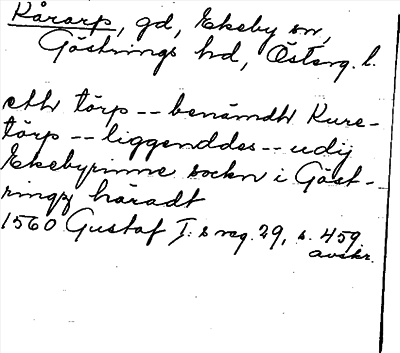 Kårarp, gd, Ekeby sn,
Göstrings hd, Österg. l.
etth törp -- benämdh Kure-
törp -- liggenddes -- udij
Ekebyinne sockn i Göst-
ringz häradt
1560 Gustaf I:s reg. 29, s. 459.
avskr.